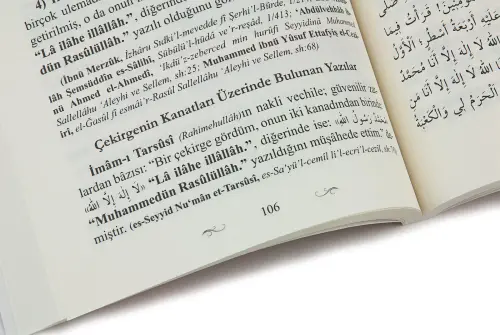 birçok ulema
getirilmiş, o da onun
"Lâ ilâhe illâllâh.", diğerinde
dün Rasûlüllâh." yazılı olduğunu gö
(İbnü Merzûk, İzhâru Sıdki'l-mevedde fî Şerhi'l-Bürde, 1/21
lâh Şemsüddîn es-Sâlihî, Sübülü'l-hüdâ ve'r-reşâd, 1/413; 'Abdülvehhâb
nü Ahmed el-Ahmedî, 'Ikdü'z-zeberced min hurûfi Seyyidinâ Muhammed
Sallellahu 'Aleyhi ve Sellem, sh:25; Muhammed ibnü Yûsuf Ettafyiş el-Ceza
iri, el-Gasûl fî esmâi'r-Rasûl Sallellahu 'Aleyhi ve Sellem, sh:68)
Çekirgenin Kanatları Üzerinde Bulunan Yazılar
İmâm-ı Tarsûsî (Rahimehullâh)ın nakli vechile; güvenilir
lardan bâzısı: "Bir çekirge gördüm, onun iki kanadından birinde:
«لَا إِلٰهَ إِلَّا اللّٰهُ» "Lâ ilâhe illâllâh.", diğerinde ise: رَسُولُ اللّٰهِ
"Muhammedün Rasûlüllâh." yazıldığını müşâhede ettim."
mıştır. (es-Seyyid Nu'mân et-Tarsûsî, es-Sa'yü'l-cemîl li'l-ecri'l-cezîl,
106
قَرَأْتُ فِيمَا
أَرْبَعَةُ أَسْطُرٍ؛ الْأَوَّلُ
لَا إِلٰهَ إِلَّا أَنَا مُحَمَّدٌ
لَا إِلٰهَ إِلَّا أَنَا مَنْ
الْحَرَمُ لِي وَالْكَعْبَةُ